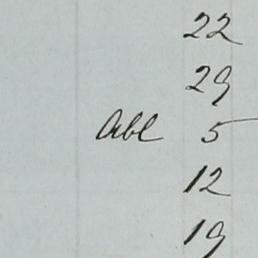 22
29
Abl 5
12
19